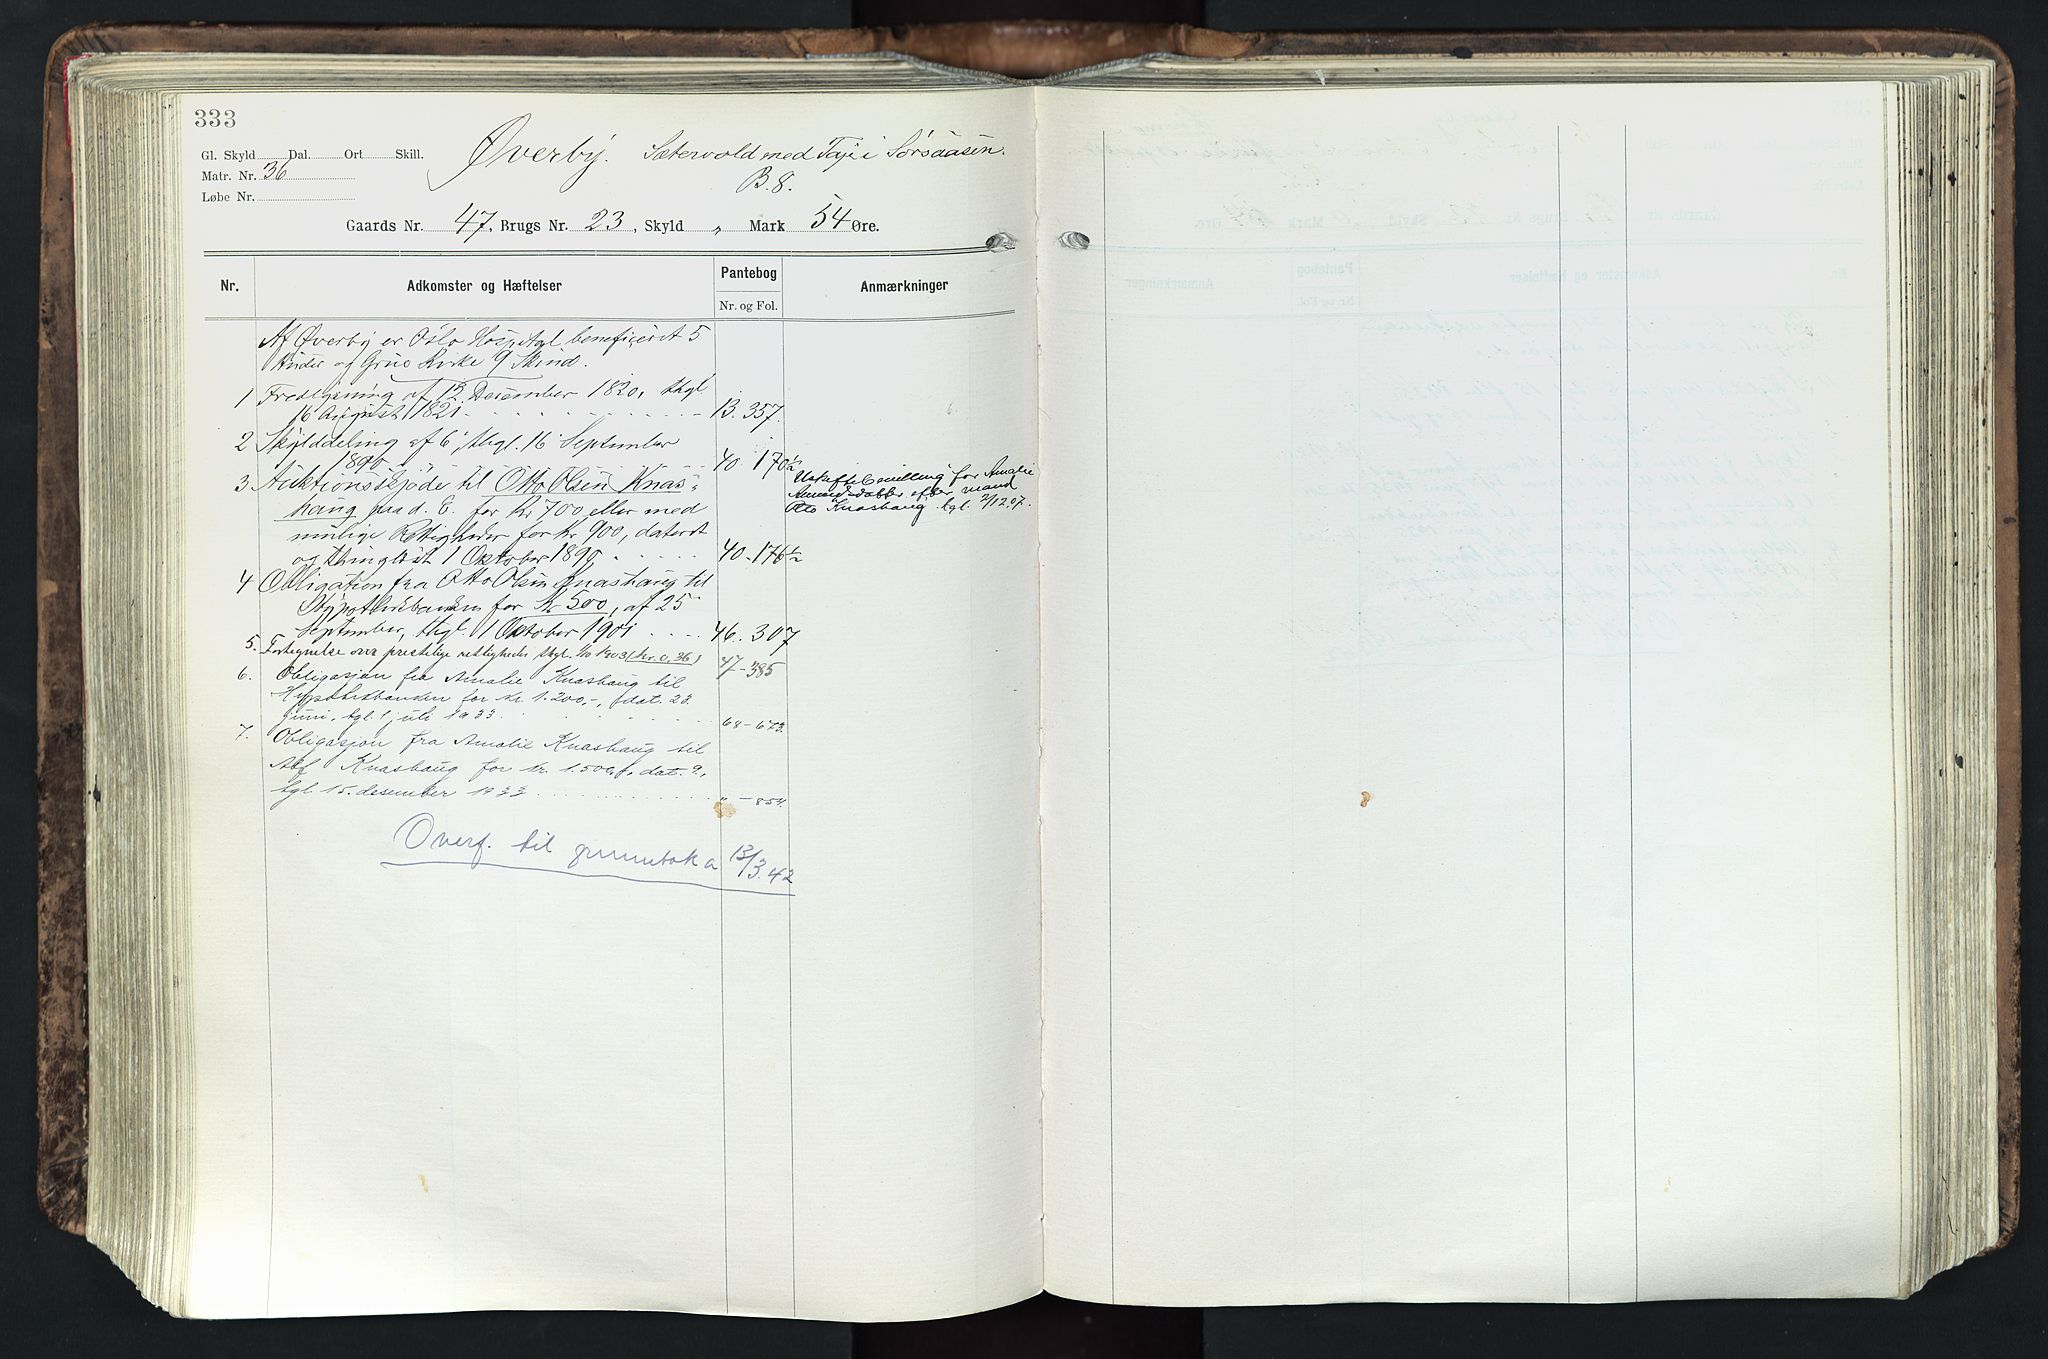 333
Gl. Skyld Dal. Ort Skill. Øverby. Sætervold med Tajei Sørsaasen.
Matr. Nr. 36 B. 8.
Løbe Nr.
Gaards Nr. 47, Brugs Nr. 23, Skyld " Mark 54 Øre.
Nr. Adkomster og Hæftelser Pantebog Anmærkninger
Nr. og Fol.
Af Øverby er Oslo Hospital beneficeret 5
Huder og Grue Kirke 9 Skind.
1 Fredlysning af 12 December 1820, thgl.
16 August 1821. B. 357.
2 Skylddeling af 6, thgl. 16 September
1890 40 - 170½
3 Auktionsskjøde til Otto Olsen Knas-
haug paa d. E. for Kr 700 eller med
mulige Rettigheder for Kr 900, dateret
og thinglæst 1 Oktober 1890. 40 - 176½
Uskiftebevilling for Amalie
Amundsdatter efter mand
Otto Knashaug tgl. 2/12.07.
4 Obligation fra Otto Olsen Knashaug til
Hypothekbanken for Kr 500, af 25
September, thgl. 1 Oktober 1901 46. 307
5. Fortegnelse over præstelige rettigheder thgl. 1/10 1903 (kr. 0,36) 47 - 385
6. Obligasjon fra Amalie Knashaug til
Hypotekbanken for kr. 1.200,-, dat. 23.
juni, tgl. 1 juli 1933 68 - 673.
7. Obligasjon fra Amalie Knashaug til
Knashaug for kr. 1.500,-, dat. 9.,
tgl 15. desember 1933 " - 854.
Overf. til grunnboka 13/3.42